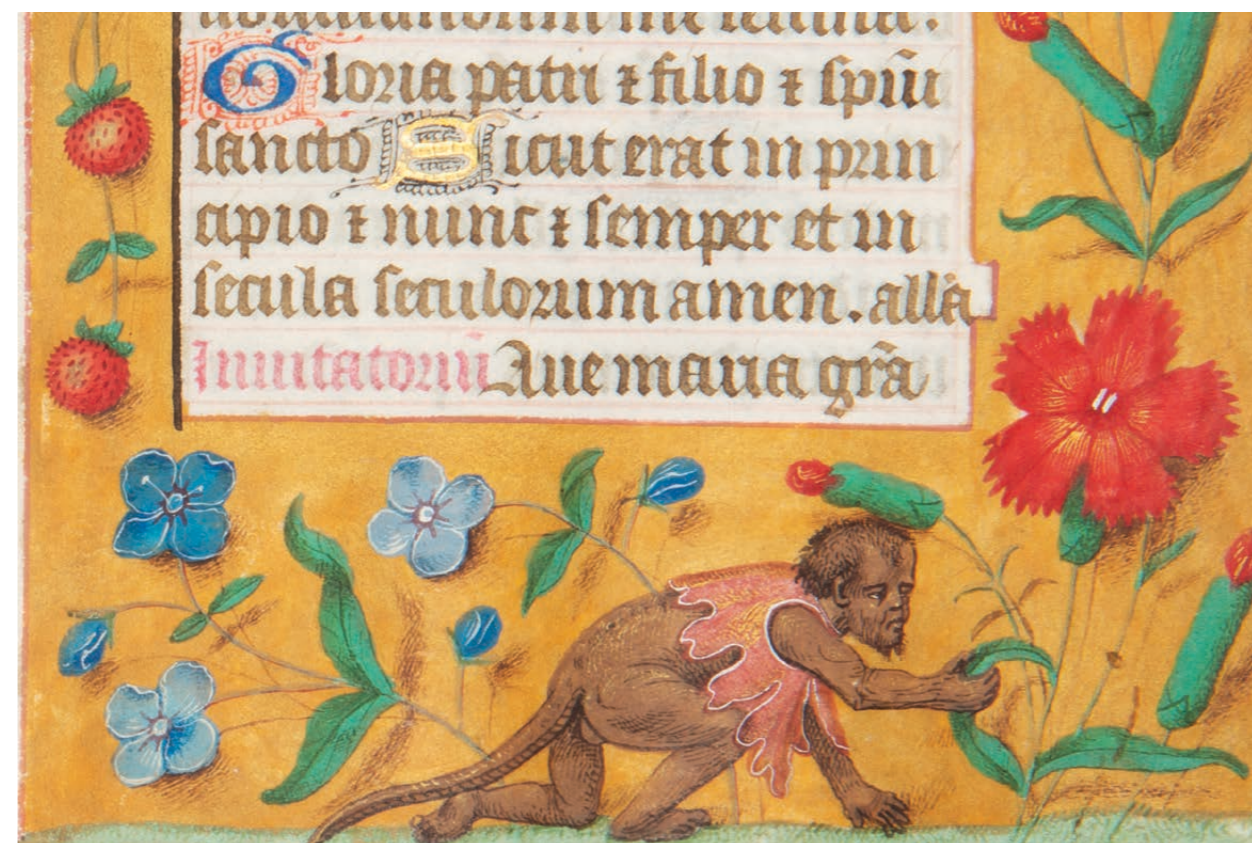 Gloria patri ⁊ filio ⁊ spūi
sancto Sicut erat in prin
cipio ⁊ nunc ⁊ semper et in
secula seculorum amen. allā
Inuitatoriū Aue maria grā